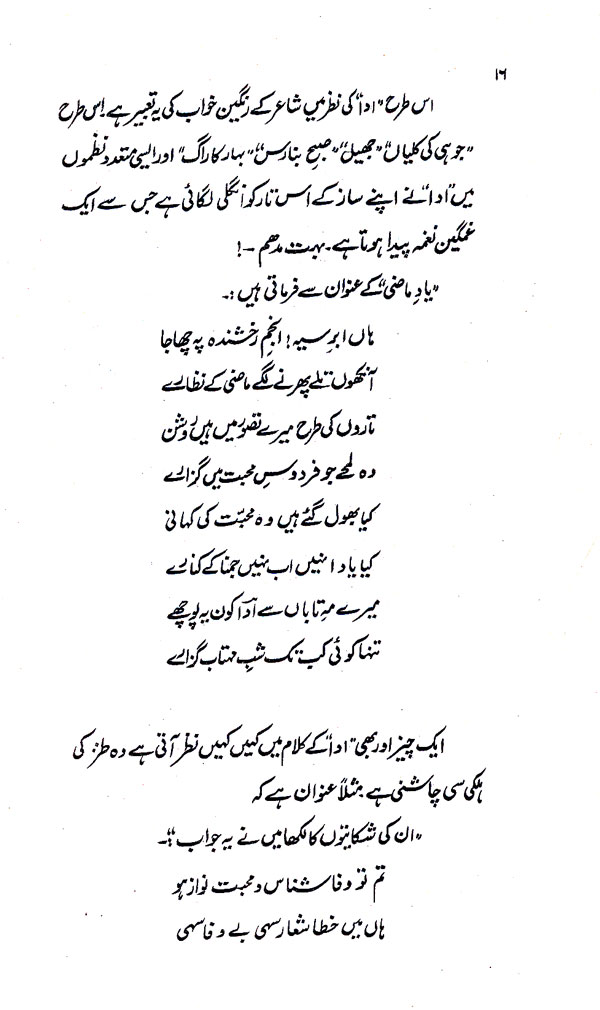 ۱۶
اس طرح "ادا" کی نظر میں شاعر کے رنگین خواب کی یہ تعبیر ہے! اس طرح
"جوہی کی کلیاں" "جھیل" "صبحِ بنارس" "بہار کا راگ" اور ایسی متعدد نظموں
میں "ادا" نے اپنے ساز کے اس تار کو انگلی لگائی ہے جس سے ایک
غمگین نغمہ پیدا ہوتا ہے۔ بہت مدھم —!
"یادِ ماضی" کے عنوان سے فرماتی ہیں :۔
ہاں ابرِ سیہ! انجمِ رخشندہ پہ چھا جا
آنکھوں تلے پھرنے لگے ماضی کے نظارے
تاروں کی طرح میرے تصوّر میں ہیں روشن
وہ لمحے جو فردوسِ محبت میں گزارے
کیا بھول گئے ہیں وہ محبّت کی کہانی
کیا یاد انہیں اب نہیں جمنا کے کنارے
میرے مہِ تاباں سے اداؔ کون یہ پوچھے
تنہا کوئی کب تک شبِ مہتاب گزارے
ایک چیز اور بھی "ادا" کے کلام میں کہیں کہیں نظر آتی ہے وہ طنز کی
ہلکی سی چاشنی ہے مثلاً عنوان ہے کہ
"ان کی شکایتوں کا لکھا میں نے یہ جواب" :۔
تم تو وفا شناس و محبت نواز ہو
ہاں میں خطا شعار سہی بے وفا سہی